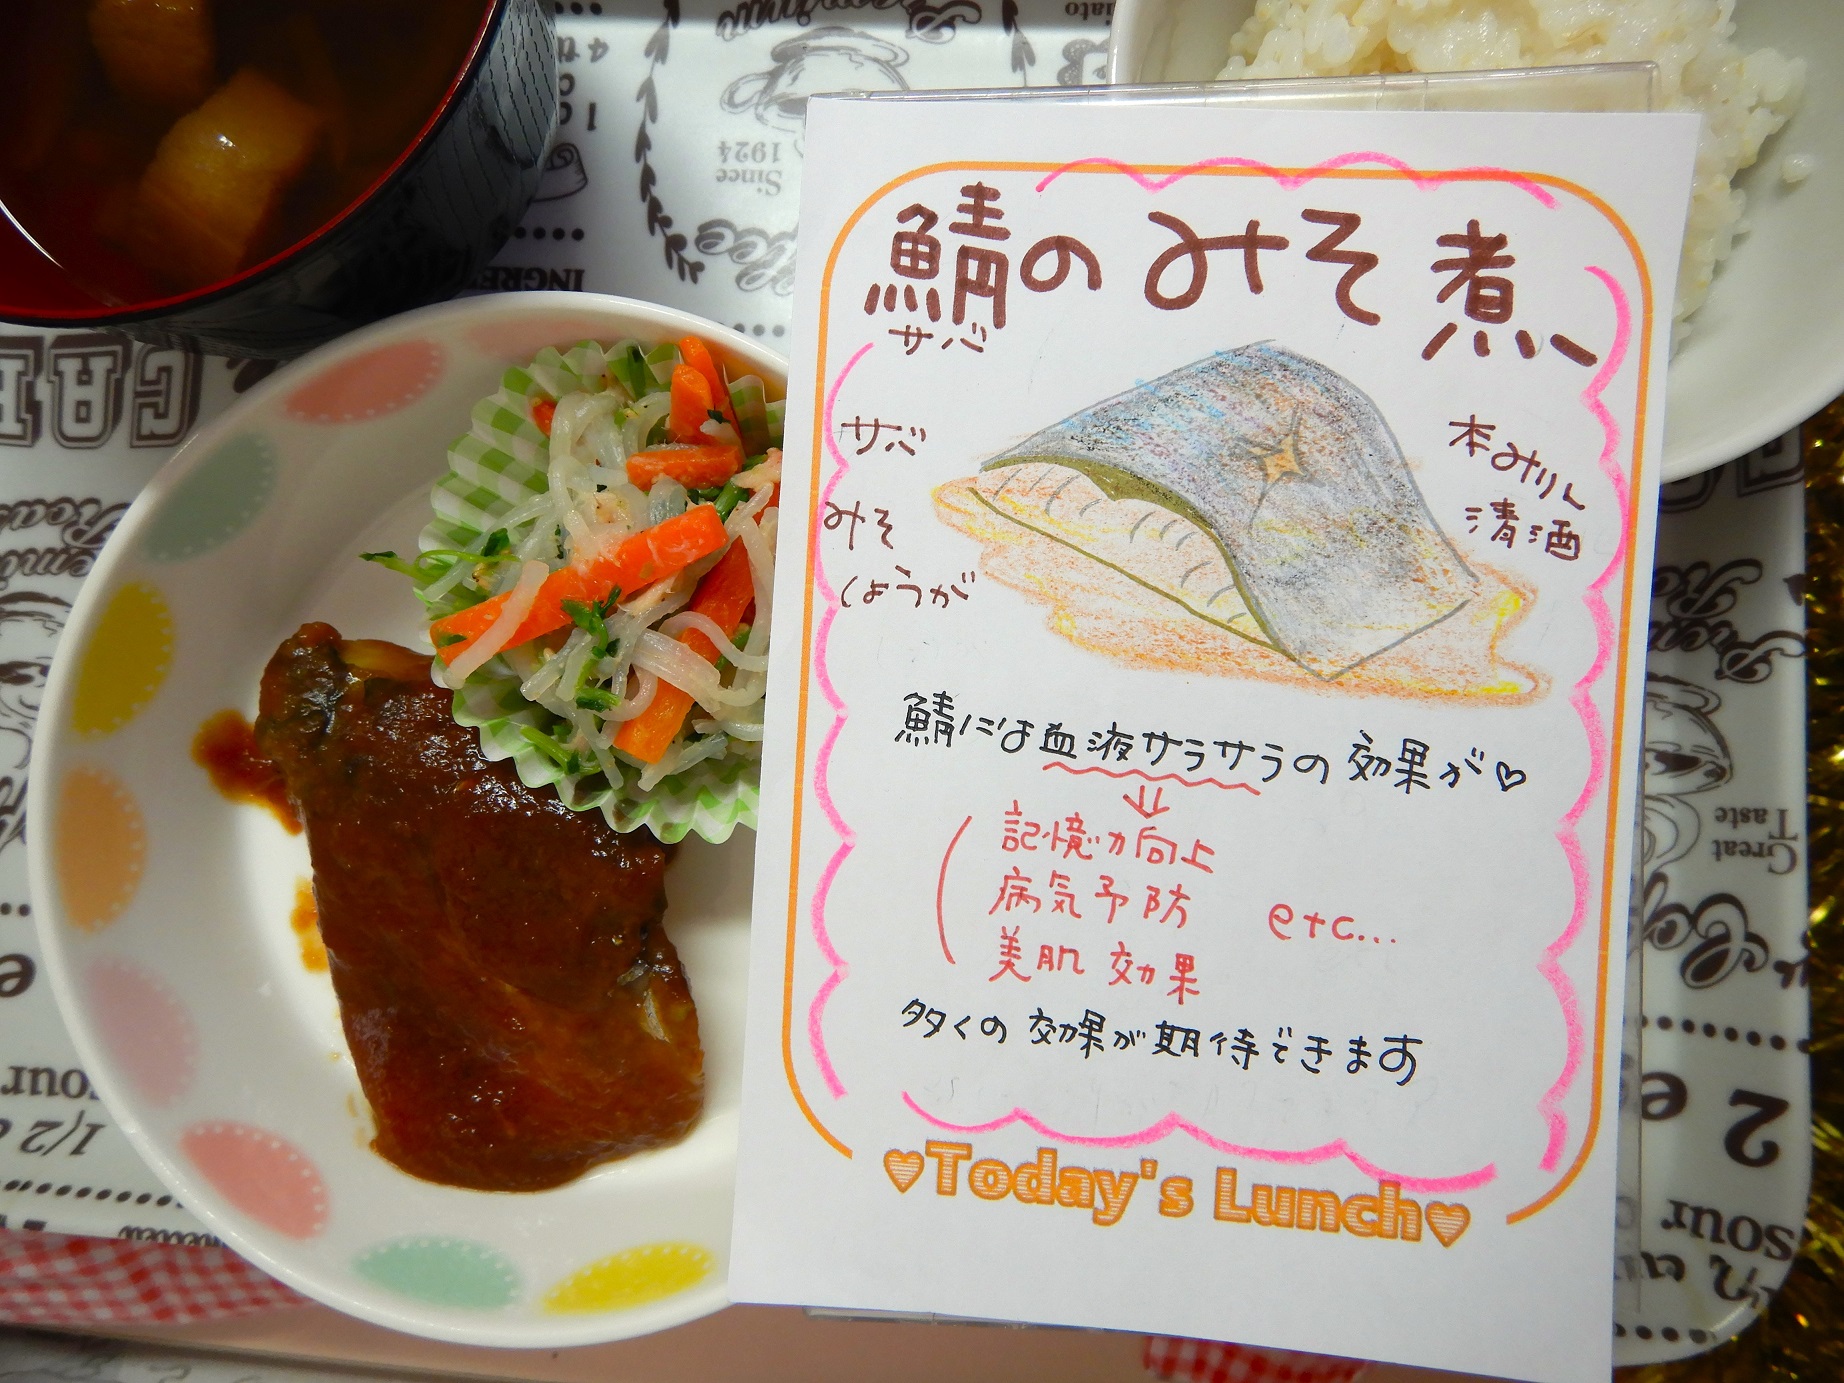 鯖のみそ煮
サバ
サバ
みそ
しょうが
本みりん
清酒
鯖には血液サラサラの効果が♡
記憶力向上
病気予防
etc...
美肌効果
多くの効果が期待できます
♥Today's Lunch♥
Since
1924
Coffee
INGRE
CAF
Great
Taste
1/2
sour
2
sour